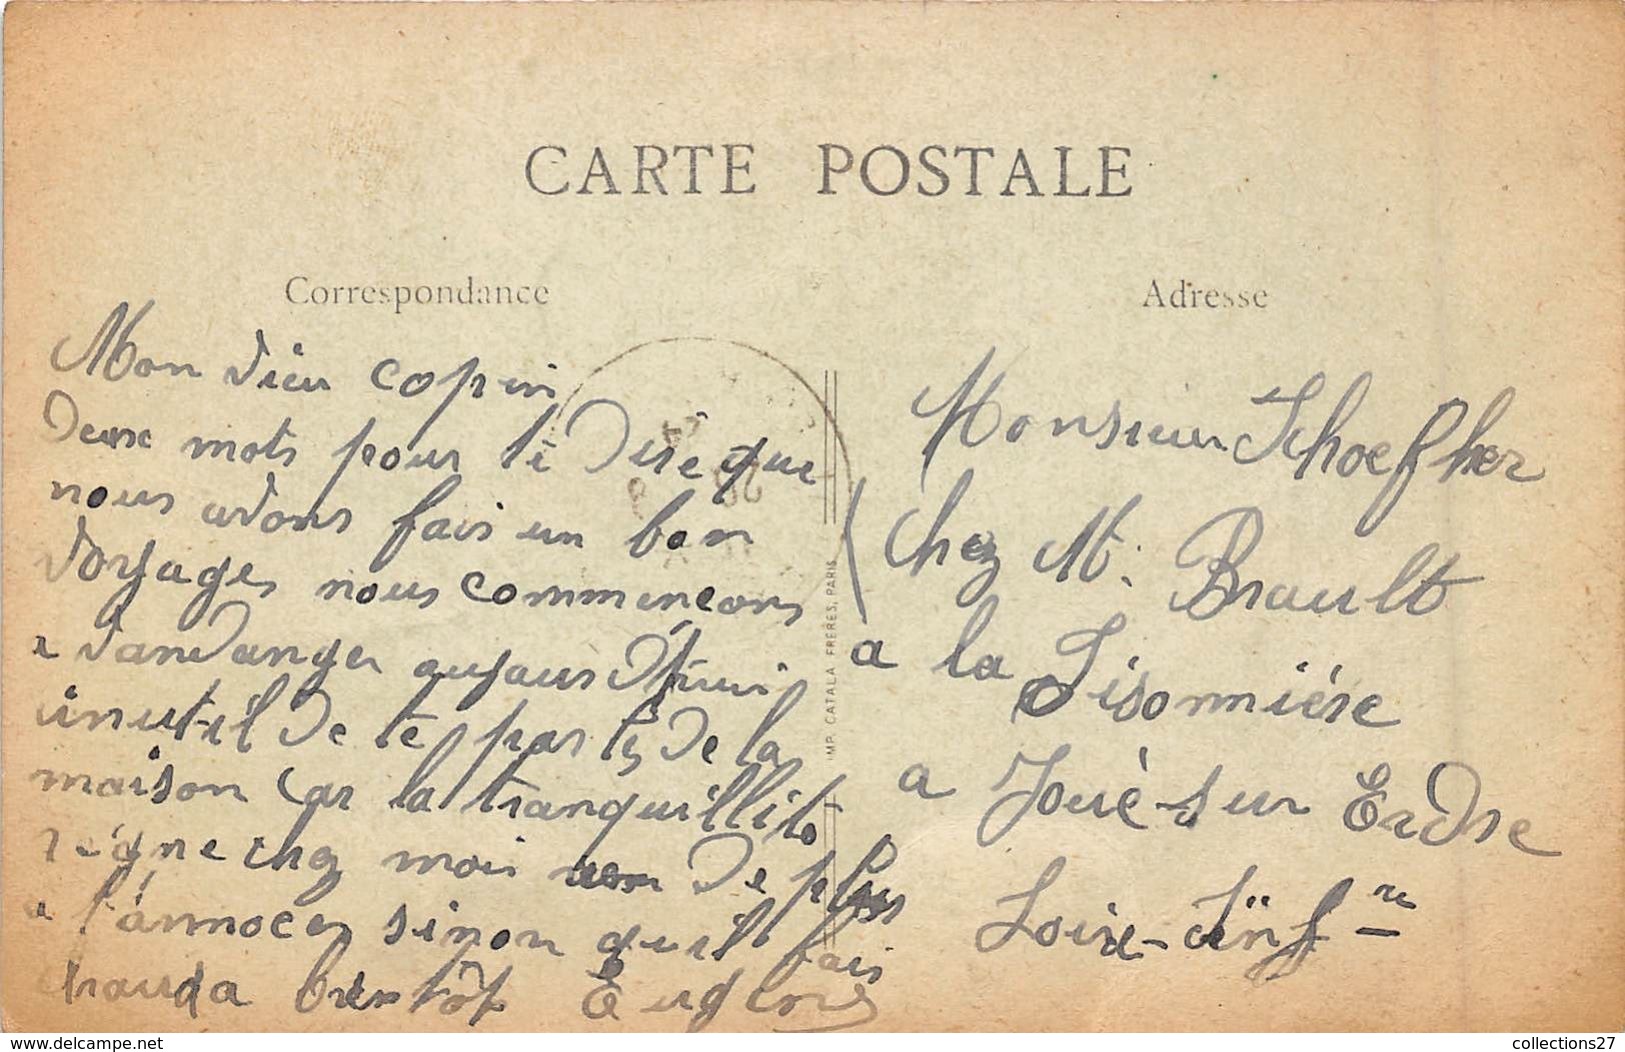 CARTE POSTALE
Correspondance
Mon vieu copin
Deux mots pour te dire que
nous avons fais un bon
voyages nous commençons
a vandanger aujourd'hui
inutil de te parler de la
maison car la tranquillité
règne chez moi rien de plus
a t'annocer sinon qu'il fais
chaud a bientôt Eugène
IMP. CATALA FRERES, PARIS
Adresse
Monsieur Schoefher
Chez M. Brault
a la Lisonnière
a Joué-sur Erdre
Loire-Inf re
www.delcampe.net
collections27